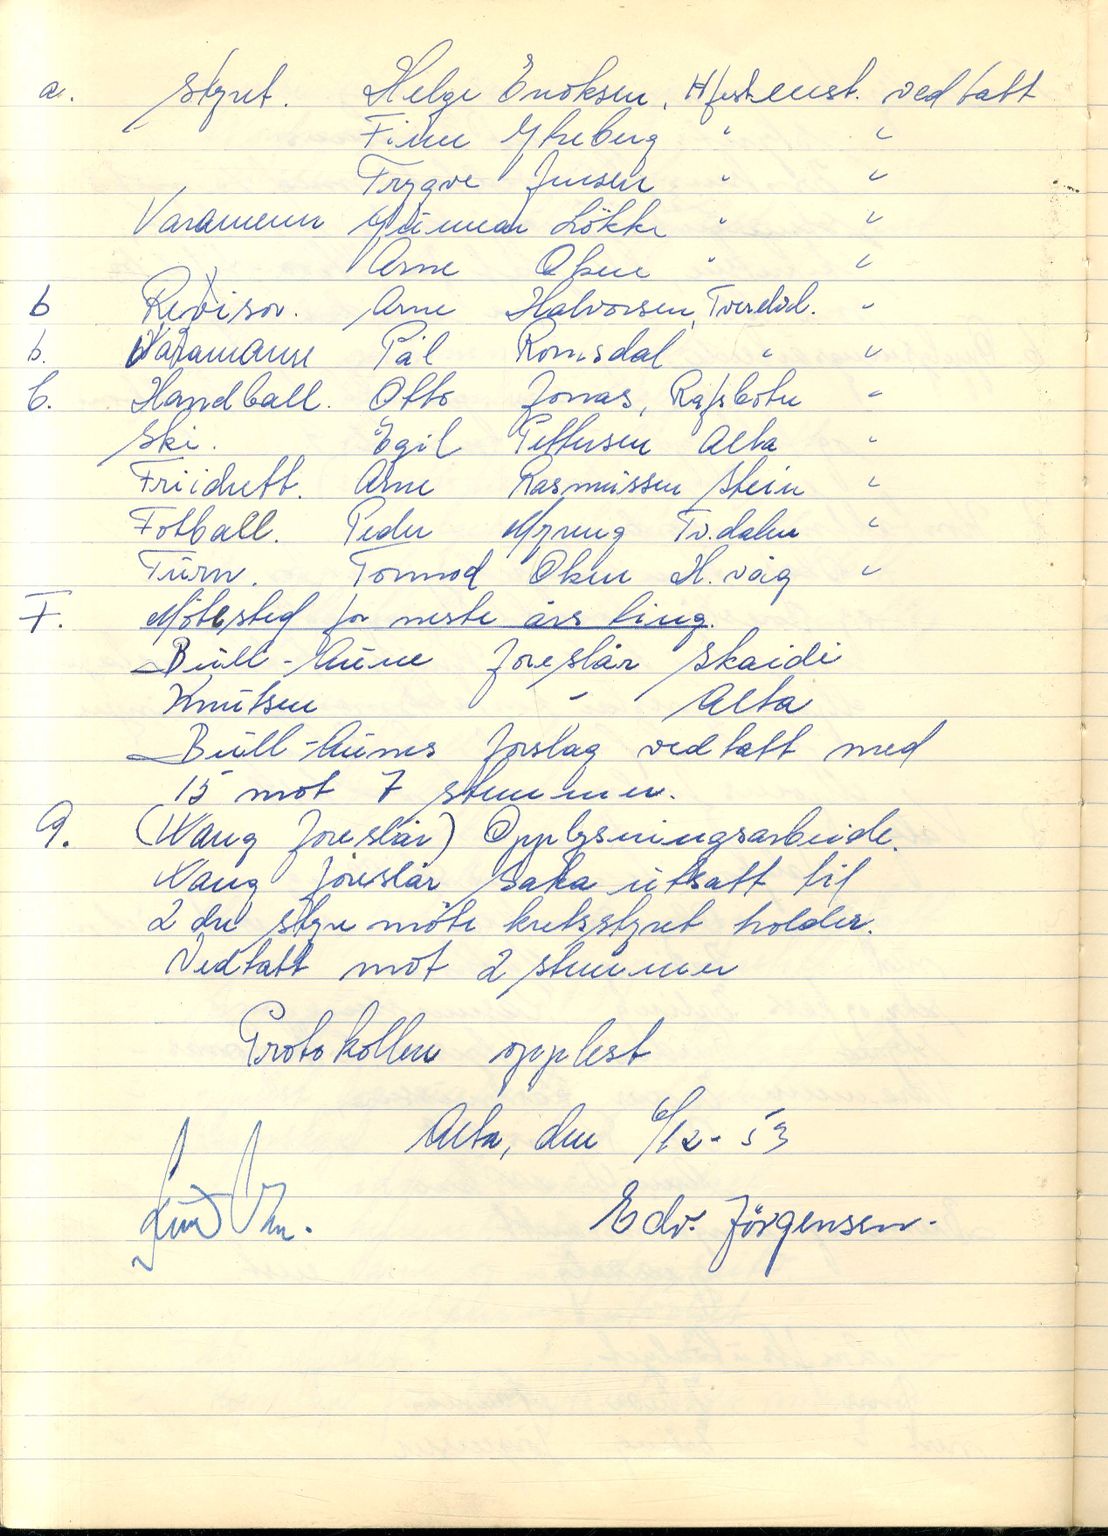 a. Styret. Helge Enoksen, H/fest enst. vedtatt
Finn Ytreberg " "
Trygve Jensen " "
Varamenn Gunnar Lökke " "
Arne Oken " "
b Revisor. Arne Halvorsen, Tverrelvd. "
b. Varamann Pål Romsdal " "
C. Handball. Otto Jonas, Rafsbotn "
Ski. Egil Pettersen Alta "
Friidrett. Arne Rasmussen Stein "
Fotball. Peder Tv.dalen "
Turn. Tormod Oken H.våg "
F. Mötested for neste års ting.
Bull-Aune foreslår Skaidi
Knutsen " Alta
Bull-Aunes forslag vedtatt med
15 mot 7 stemmer.
9. (Wang foreslår) Opplysningsarbeide.
Wang foreslår saka utsatt til
2 dre styremöte kretsstyret holder.
Vedtatt mot 2 stemmer
Protokollen opplest
Alta, den 6/12-53
Edv. Jörgensen.